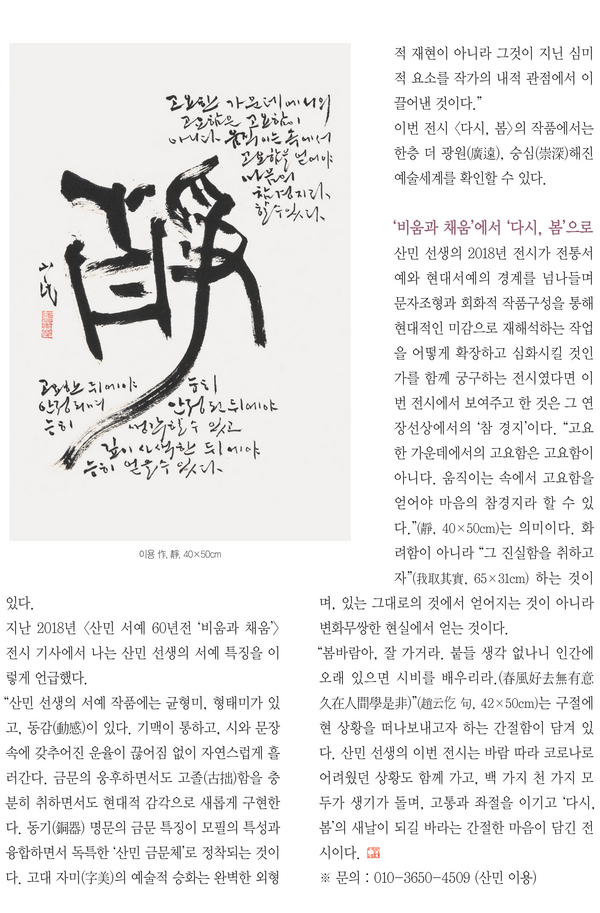 고요한 가운데에서의
고요함은 고요함이
아니다 움직이는 속에서
고요함을 얻어야
마음의
참경지라
할 수 있다.
靜
山民
고요한 뒤에야 능히
안정되며 안정된 뒤에야
능히 생각할 수 있고
깊이 사색한 뒤에야
능히 얻을 수 있다.
이용 作, 靜, 40×50cm
있다.
지난 2018년 〈산민 서예 60년전 ‘비움과 채움’〉
전시 기사에서 나는 산민 선생의 서예 특징을 이
렇게 언급했다.
“산민 선생의 서예 작품에는 균형미, 형태미가 있
고, 동감(動感)이 있다. 기맥이 통하고, 시와 문장
속에 갖추어진 운율이 끊어짐 없이 자연스럽게 흘
러간다. 금문의 웅후하면서도 고졸(古拙)함을 충
분히 취하면서도 현대적 감각으로 새롭게 구현한
다. 동기(銅器) 명문의 금문 특징이 모필의 특성과
융합하면서 독특한 ‘산민 금문체’로 정착되는 것이
다. 고대 자미(字美)의 예술적 승화는 완벽한 외형
적 재현이 아니라 그것이 지닌 심미
적 요소를 작가의 내적 관점에서 이
끌어낸 것이다.”
이번 전시 〈다시, 봄〉의 작품에서는
한층 더 광원(廣遠), 숭심(崇深)해진
예술세계를 확인할 수 있다.
‘비움과 채움’에서 ‘다시, 봄’으로
산민 선생의 2018년 전시가 전통서
예와 현대서예의 경계를 넘나들며
문자조형과 회화적 작품구성을 통해
현대적인 미감으로 재해석하는 작업
을 어떻게 확장하고 심화시킬 것인
가를 함께 궁구하는 전시였다면 이
번 전시에서 보여주고 한 것은 그 연
장선상에서의 ‘참 경지’이다. “고요
한 가운데에서의 고요함은 고요함이
아니다. 움직이는 속에서 고요함을
얻어야 마음의 참경지라 할 수 있
다.”(靜, 40×50cm)는 의미이다. 화
려함이 아니라 “그 진실함을 취하고
자”(我取其實, 65×31cm) 하는 것이
며, 있는 그대로의 것에서 얻어지는 것이 아니라
변화무쌍한 현실에서 얻는 것이다.
“봄바람아, 잘 가거라. 붙들 생각 없나니 인간에
오래 있으면 시비를 배우리라.(春風好去無有意
久在人間學是非)”(趙云仡 句, 42×50cm)는 구절에
현 상황을 떠나보내고자 하는 간절함이 담겨 있
다. 산민 선생의 이번 전시는 바람 따라 코로나로
어려웠던 상황도 함께 가고, 백 가지 천 가지 모
두가 생기가 돌며, 고통과 좌절을 이기고 ‘다시,
봄’의 새날이 되길 바라는 간절한 마음이 담긴 전
시이다.
※ 문의 : 010-3650-4509 (산민 이용)